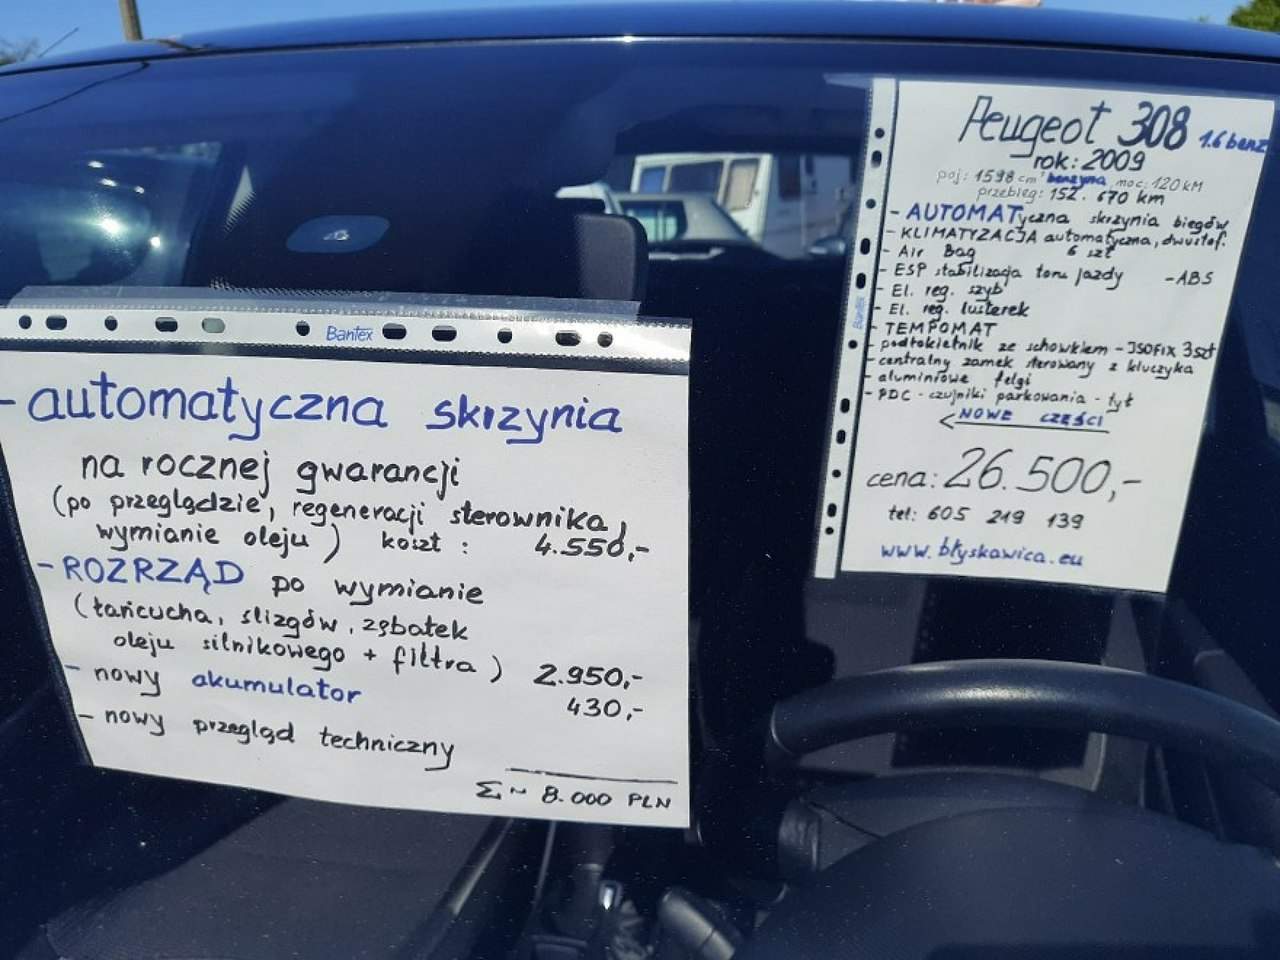 Bantex
- automatyczna skrzynia
na rocznej gwarancji
(po przeglądzie, regeneracji sterownika,
wymianie oleju) koszt : 4.550,-
- ROZRZĄD po wymianie
(łańcucha, ślizgów, zębatek
oleju silnikowego + filtra) 2.950,-
- nowy akumulator 430,-
- nowy przegląd techniczny
Σ ~ 8.000 PLN
Peugeot 308 1.6 benz
rok: 2009
poj: 1598 cm³ benzyna, moc: 120 kM
przebieg: 152.670 km
- AUTOMATyczna skrzynia biegów
- KLIMATYZACJA automatyczna, dwustof.
- Air Bag 6 szt
- ESP stabilizacja toru jazdy - ABS
- El. reg. szyb
- El. reg. lusterek
- TEMPOMAT
- podłokietnik ze schowkiem - ISOFIX 3szt
- centralny zamek sterowany z kluczyka
- aluminiowe felgi
- PDC - czujniki parkowania - tył
← NOWE CZĘŚCI
cena: 26.500,-
tel: 605 219 139
www.błyskawica.eu
Bantex